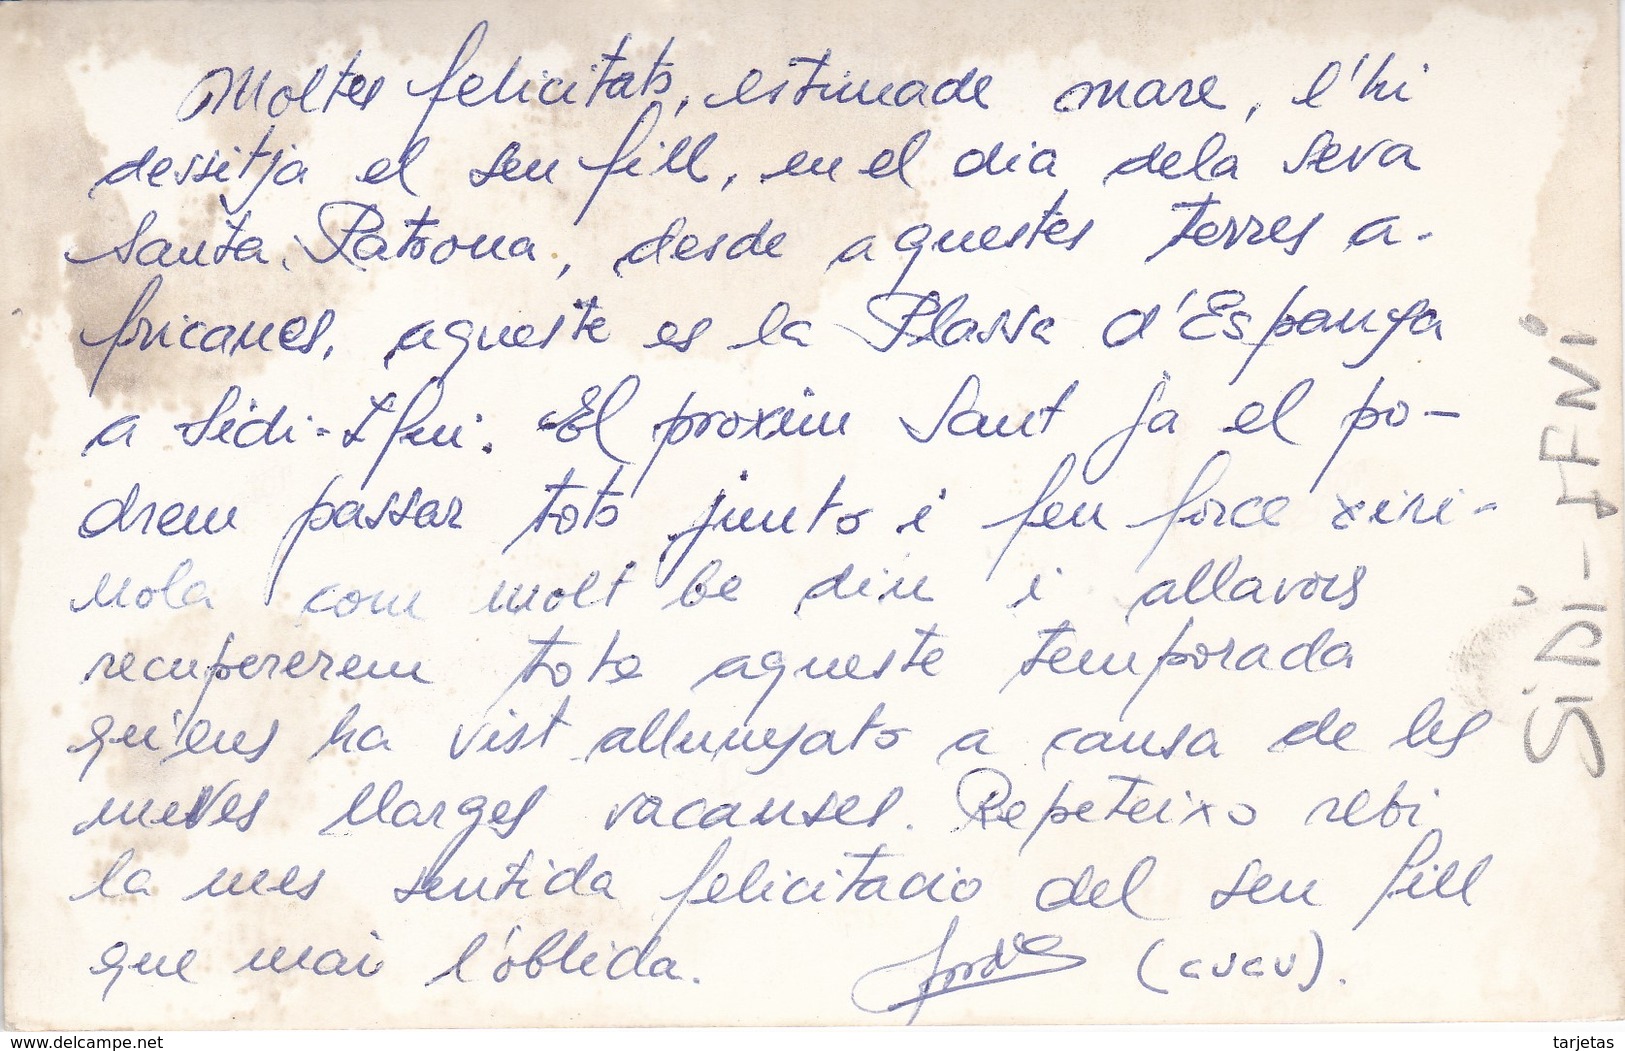 Moltes felicitats, estimade mare, l'hi
dessitja el seu fill, en el dia dela seva
Santa Patrona, desde aquestes terres a-
fricanes, aqueste es la Plassa d'Espanya
a Sidi-Ifni. El proxim Sant ja el po-
drem passar tots junts i feu force xiri-
mola com molt be diu i allavors
recupererem tote aqueste temporada
qu'ens ha vist allunyats a causa de les
meves llarges vacanses. Repeteixo rebi
la mes sentida felicitacio del seu fill
que mai l'oblida. (cucu).
SIDI-IFNI
delcampe.net
tarjetas